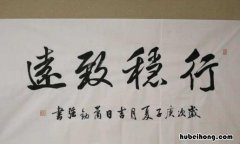 行穩致遠
歲次庚子夏月吉日書
hubeihong.com